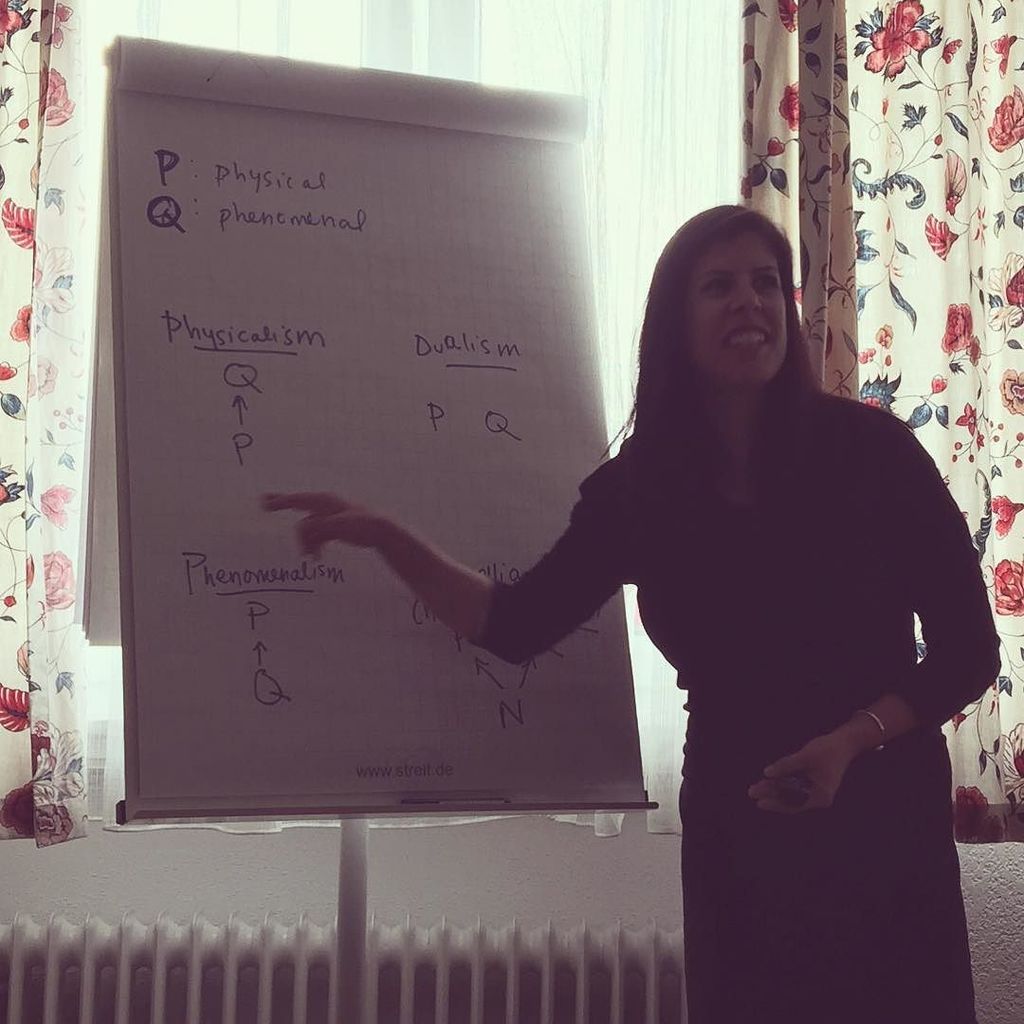 P: physical
Q: phenomenal
Physicalism
Q
↑
P
Dualism
P Q
Phenomenalism
P
↑
Q
N
www.streit.de